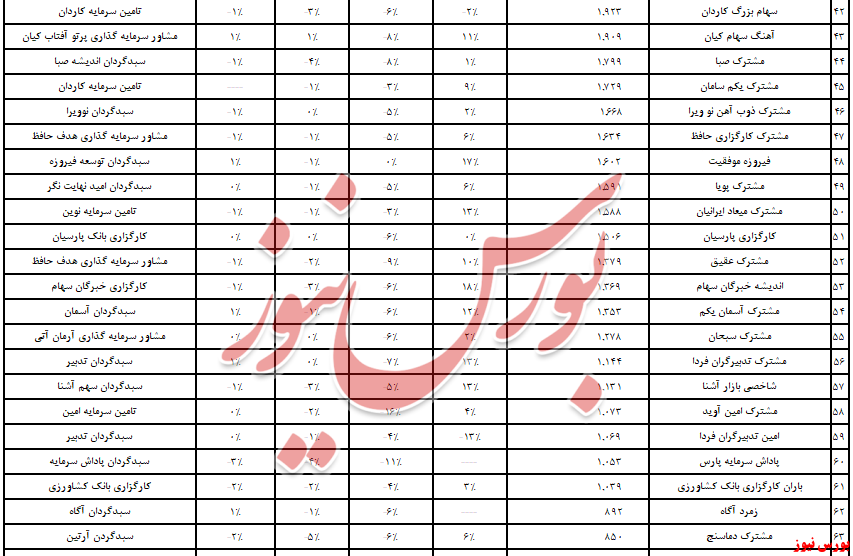 ۴۲ سهام بزرگ کاردان ۱.۹۲۳ -۲٪ -۶٪ -۳٪ -۱٪ تامین سرمایه کاردان
۴۳ آهنگ سهام کیان ۱.۹۰۹ ۱۱٪ -۸٪ ۱٪ ۱٪ مشاور سرمایه گذاری پرتو آفتاب کیان
۴۴ مشترک صبا ۱.۷۹۹ ۱٪ -۸٪ -۴٪ -۱٪ سبدگردان اندیشه صبا
۴۵ مشترک یکم سامان ۱.۷۲۹ ۹٪ -۳٪ -۱٪ —— تامین سرمایه کاردان
۴۶ مشترک ذوب آهن نو ویرا ۱.۶۶۸ ۲٪ -۵٪ ۰٪ -۱٪ سبدگردان نوویرا
۴۷ مشترک کارگزاری حافظ ۱.۶۳۴ ۶٪ -۵٪ -۱٪ -۱٪ مشاور سرمایه گذاری هدف حافظ
۴۸ فیروزه موفقیت ۱.۶۰۲ ۱۷٪ ۰٪ -۱٪ ۱٪ سبدگردان توسعه فیروزه
۴۹ مشترک پویا ۱.۵۹۱ ۶٪ -۵٪ -۱٪ ۰٪ سبدگردان امید نهایت نگر
۵۰ مشترک میعاد ایرانیان ۱.۵۸۸ ۱۳٪ -۳٪ -۱٪ -۱٪ تامین سرمایه نوین
۵۱ کارگزاری پارسیان ۱.۵۰۶ ۰٪ -۶٪ ۰٪ ۰٪ کارگزاری بانک پارسیان
۵۲ مشترک عقیق ۱.۳۷۹ ۱۰٪ -۹٪ -۲٪ -۱٪ مشاور سرمایه گذاری هدف حافظ
۵۳ اندیشه خبرگان سهام ۱.۳۶۹ ۱۸٪ -۶٪ -۳٪ -۱٪ کارگزاری خبرگان سهام
۵۴ مشترک آسمان یکم ۱.۳۵۳ ۱۲٪ -۶٪ -۱٪ ۱٪ سبدگردان آسمان
۵۵ مشترک سبحان ۱.۲۷۸ ۲٪ -۶٪ ۰٪ ۰٪ مشاور سرمایه گذاری آرمان آتی
۵۶ مشترک تدبیرگران فردا ۱.۱۴۴ ۱۳٪ -۷٪ ۰٪ ۱٪ سبدگردان تدبیر
۵۷ شاخصی بازار آشنا ۱.۱۳۱ ۱۳٪ -۵٪ -۳٪ -۱٪ سبدگردان سهم آشنا
۵۸ مشترک امین آوید ۱.۰۷۳ ۴٪ -۱۶٪ -۲٪ ۰٪ تامین سرمایه امین
۵۹ امین تدبیرگران فردا ۱.۰۶۹ -۱۳٪ -۴٪ -۱٪ ۰٪ سبدگردان تدبیر
۶۰ پاداش سرمایه پارس ۱.۰۵۳ —— -۱۱٪ -۴٪ -۳٪ سبدگردان پاداش سرمایه
۶۱ باران کارگزاری بانک کشاورزی ۱.۰۳۹ ۳٪ -۴٪ -۲٪ -۲٪ کارگزاری بانک کشاورزی
۶۲ زمرد آگاه ۸۹۲ —— -۶٪ -۱٪ ۱٪ سبدگردان آگاه
۶۳ مشترک دماسنج ۸۵۰ ۶٪ -۶٪ -۵٪ -۲٪ سبدگردن آرتین
بورس نیوز
بورس نیوز